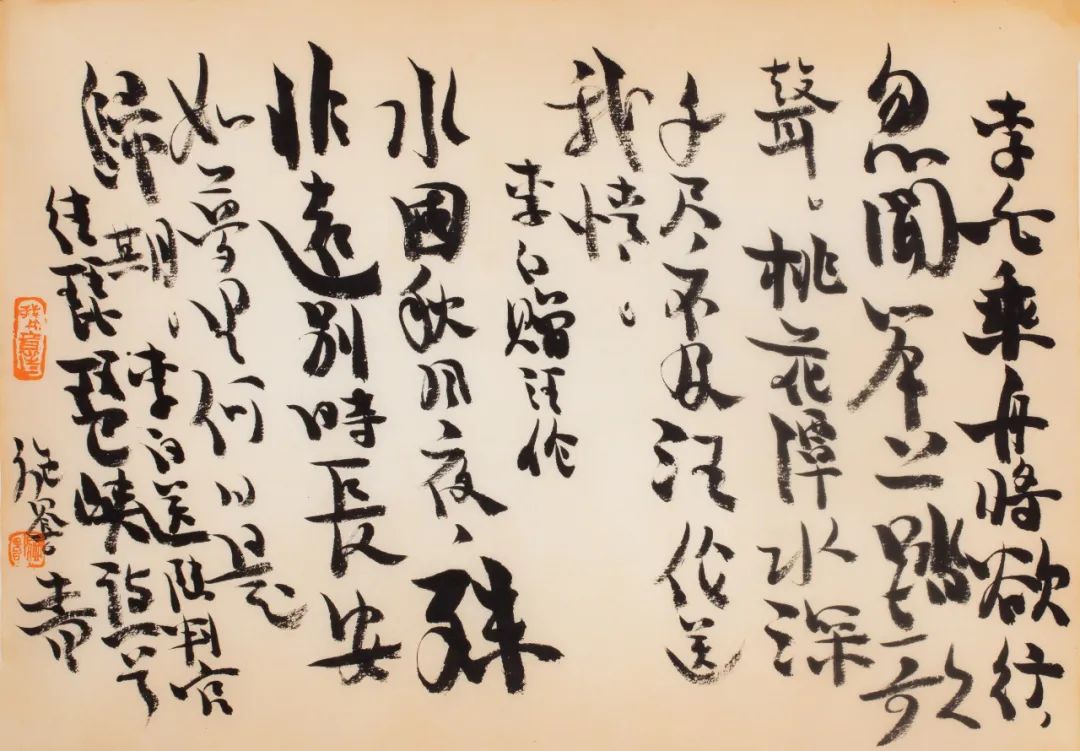 李白乘舟將欲行,
忽聞岸上踏歌
聲。桃花潭水深
千尺、不及汪伦送
我情。
李白赠汪伦
水國秋风夜、殊
非遠别時長安
如夢里何日是
歸期。
李白送陆判官
往琵琶峡